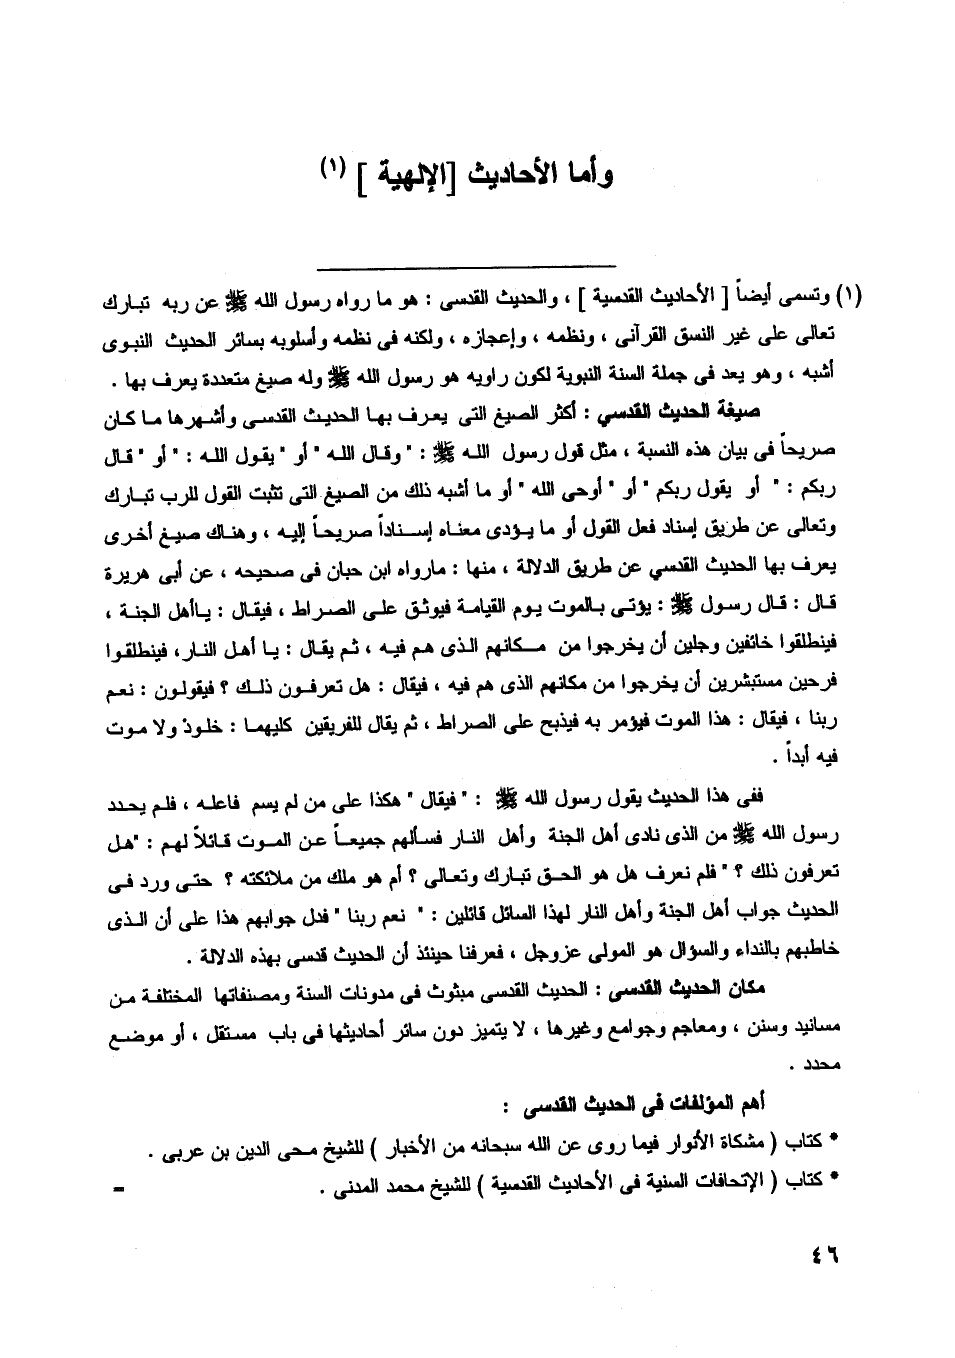 وأما الأحاديث [الإلهية ] (١)
(١) وتسمى أيضاً [ الأحاديث القدسية ] ، والحديث القدسى : هو ما رواه رسول الله ﷺ عن ربه تبارك
تعالى على غير النسق القرآنى ، ونظمه ، وإعجازه ، ولكنه فى نظمه وأسلوبه بسائر الحديث النبوى
أشبه ، وهو يعد فى جملة السنة النبوية لكون راويه هو رسول الله ﷺ وله صيغ متعددة يعرف بها .
صيغة الحديث القدسي : أكثر الصيغ التى يعرف بها الحديث القدسى وأشهرها ما كان
صريحاً فى بيان هذه النسبة ، مثل قول رسول الله ﷺ : " وقال الله " أو " يقول الله : " أو " قال
ربكم : " أو يقول ربكم " أو " أوحى الله " أو ما أشبه ذلك من الصيغ التى تثبت القول للرب تبارك
وتعالى عن طريق إسناد فعل القول أو ما يؤدى معناه إسناداً صريحاً إليه ، وهناك صيغ أخرى
يعرف بها الحديث القدسي عن طريق الدلالة ، منها : مارواه ابن حبان فى صحيحه ، عن أبى هريرة
قال : قال رسول ﷺ : يؤتى بالموت يوم القيامة فيوثق على الصراط ، فيقال : ياأهل الجنة ،
فينطلقوا خائفين وجلين أن يخرجوا من مكانهم الذى هم فيه ، ثم يقال : يا أهل النار، فينطلقوا
فرحين مستبشرين أن يخرجوا من مكانهم الذى هم فيه ، فيقال : هل تعرفون ذلك ؟ فيقولون : نعم
ربنا ، فيقال : هذا الموت فيؤمر به فيذبح على الصراط ، ثم يقال للفريقين كليهما : خلودٌ ولا موت
فيه أبداً .
ففى هذا الحديث يقول رسول الله ﷺ : " فيقال " هكذا على من لم يسم فاعله ، فلم يحدد
رسول الله ﷺ من الذى نادى أهل الجنة وأهل النار فسألهم جميعاً عن الموت قائلاً لهم : "هل
تعرفون ذلك ؟ " فلم نعرف هل هو الحق تبارك وتعالى ؟ أم هو ملك من ملائكته ؟ حتى ورد فى
الحديث جواب أهل الجنة وأهل النار لهذا السائل قائلين : " نعم ربنا " فدل جوابهم هذا على أن الذى
خاطبهم بالنداء والسؤال هو المولى عزوجل ، فعرفنا حينئذ أن الحديث قدسى بهذه الدلالة .
مكان الحديث القدسى : الحديث القدسى مبثوث فى مدونات السنة ومصنفاتها المختلفة من
مسانيد وسنن ، ومعاجم وجوامع وغيرها ، لا يتميز دون سائر أحاديثها فى باب مستقل ، أو موضع
محدد .
أهم المؤلفات فى الحديث القدسى :
* كتاب ( مشكاة الأنوار فيما روى عن الله سبحانه من الأخبار ) للشيخ محى الدين بن عربى .
* كتاب ( الإتحافات السنية فى الأحاديث القدسية ) للشيخ محمد المدنى . =
٤٦